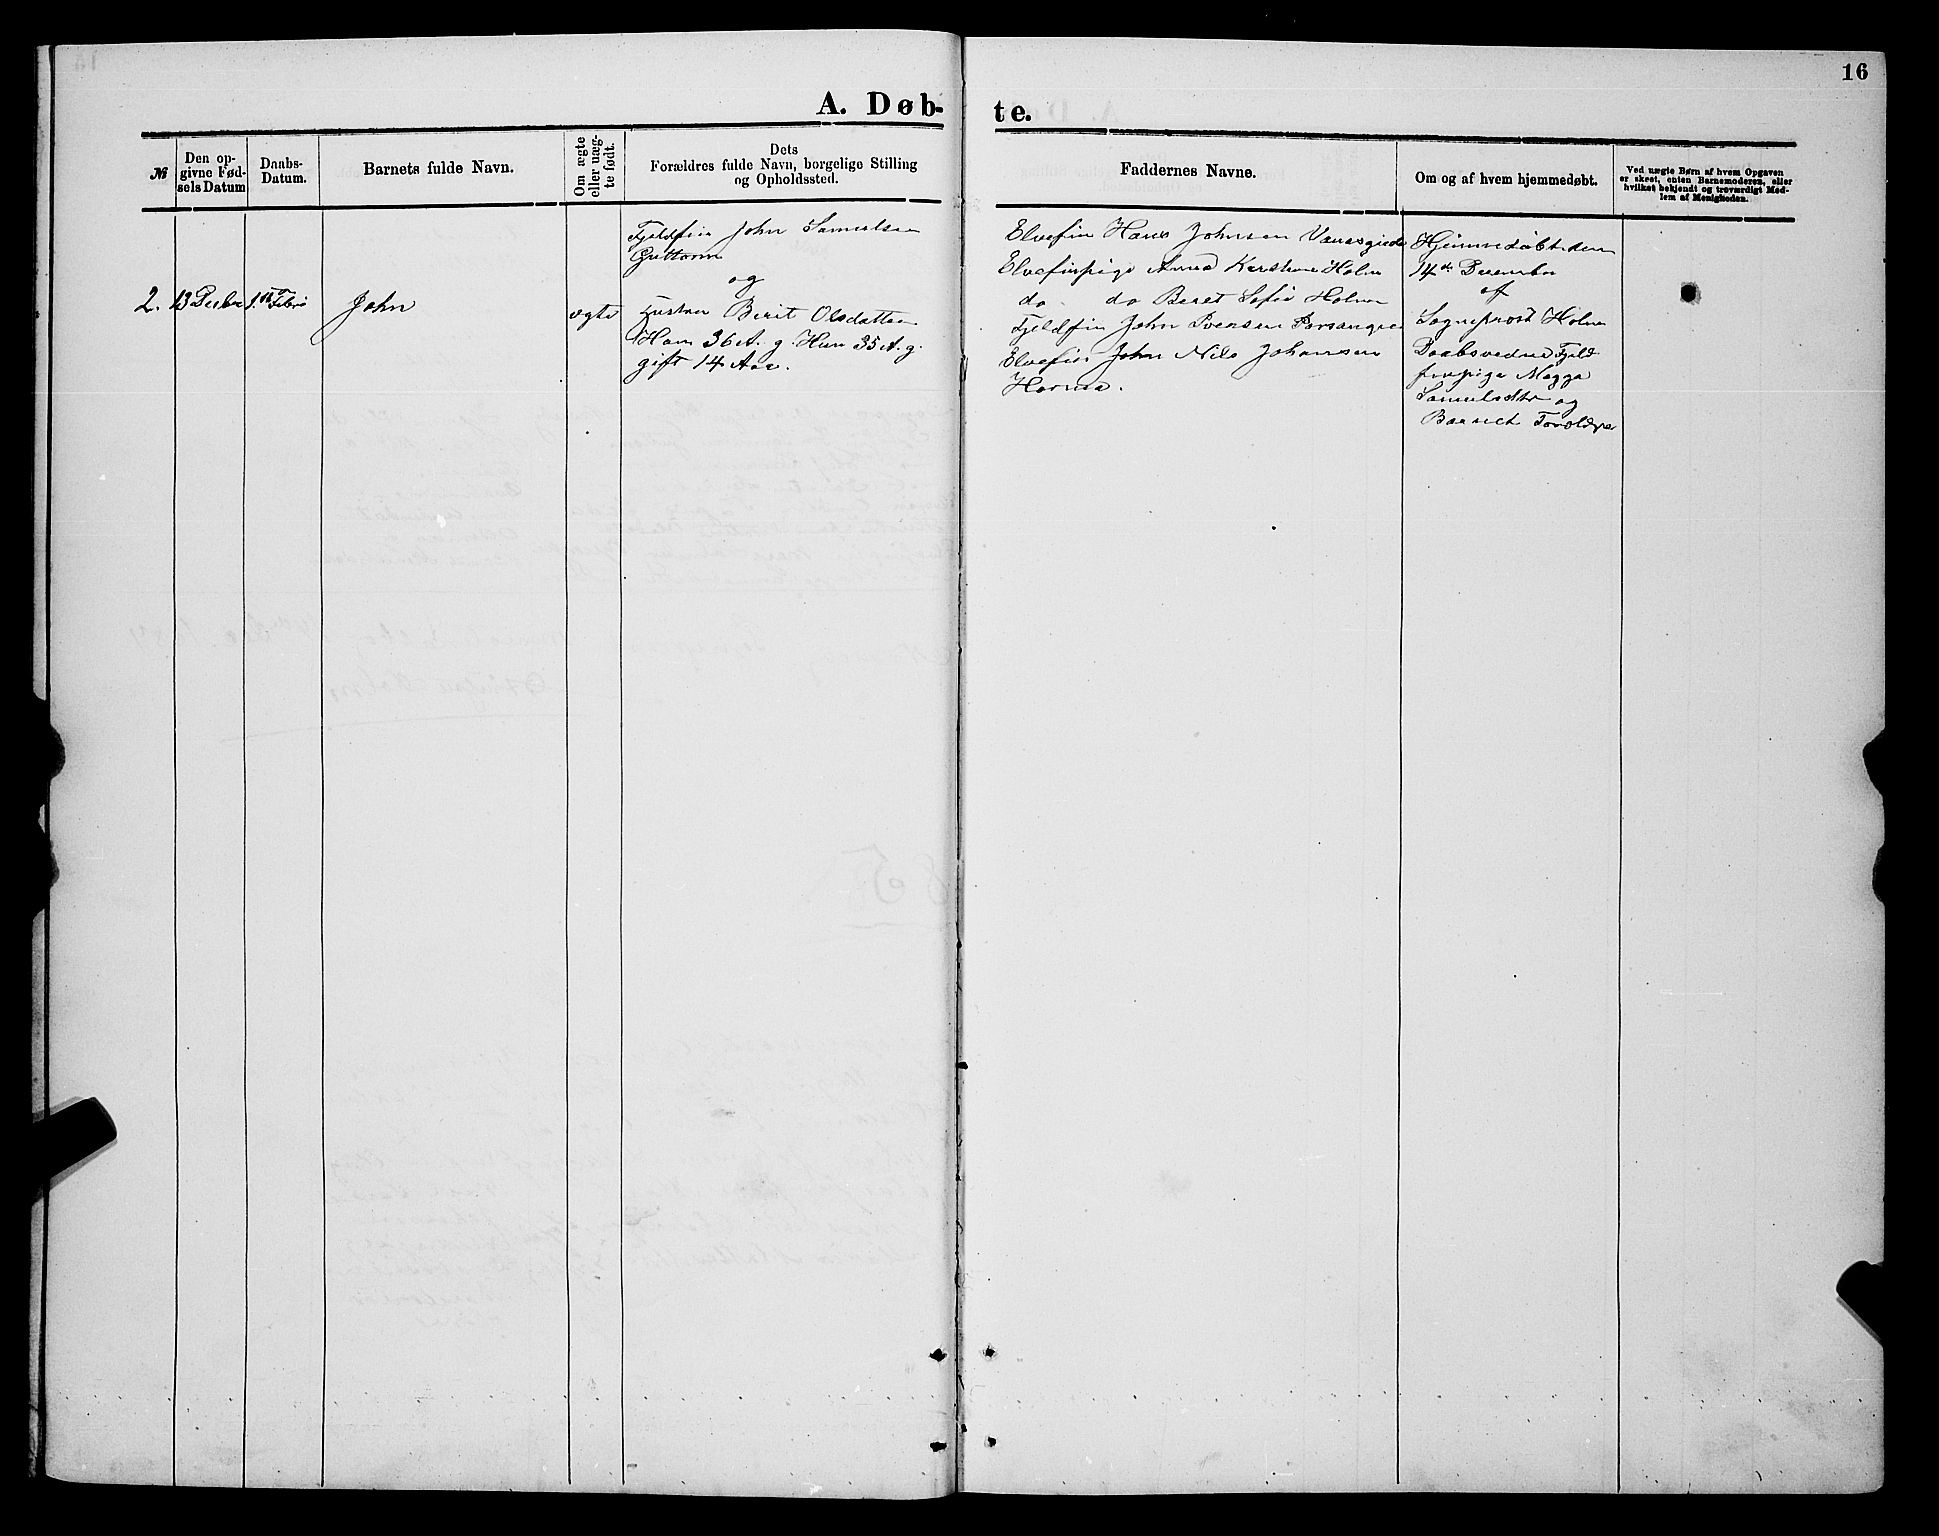 16
A. Døb-
te.
№
Den op-
givne Fød-
sels Datum
Daabs-
Datum.
Barnets fulde Navn.
Om ægte
eller uæg-
te født.
Dets
Forældres fulde Navn, borgelige Stilling
og Opholdssted.
Faddernes Navne.
Om og af hvem hjemmedøbt.
Ved uægte Børn af hvem Opgaven
er skeet, enten Barnemoderen, eller
hvilket bekjendt og troværdigt Med-
lem af Menigheden.
2.
13 Decbr
1ste Febr
John
ægte
Fjeldfin John Samuelsen
Guttorm
og
Hustru Berit Olsdatter
Han 36 A. g. Hun 35 A. g.
gift 14 Aar.
Elvefin Hans Johnsen
Elvefinpige Anna Kirstine Holm
do do Beret Sofie Holm
Fjeldfin John Svensen
Elvefin John Nils Johansen
Hjemmedøbt den
14de December
af
Sogneprest Holm
Daabsvidne Fjeld
finpige Magga
Samuelsdtr og
Barnets Forældre